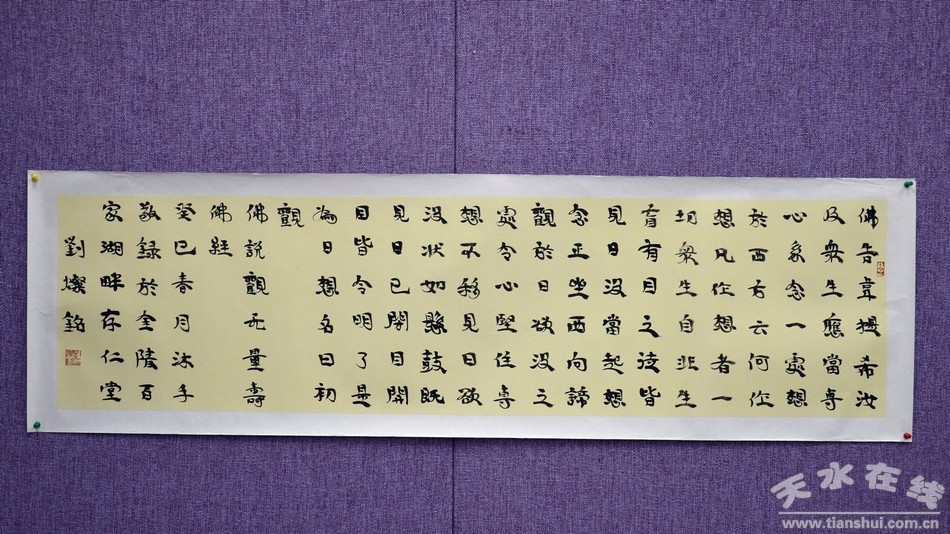 佛告韋提希汝
及衆生應當專
心系念一處想
於西方云何作
想凡作想者一
切衆生自非生
盲有目之徒皆
見日没當起想
念正坐西向諦
觀於日欲没之
處令心堅住專
想不移見日欲
没状如懸鼓既
見日已閉目開
目皆令明了是
為日想名曰初
觀
佛說觀无量壽
佛經
癸巳春月沐手
敬録於金陵百
家湖畔存仁堂
劉燦銘
天水在线
www.tianshui.com.cn